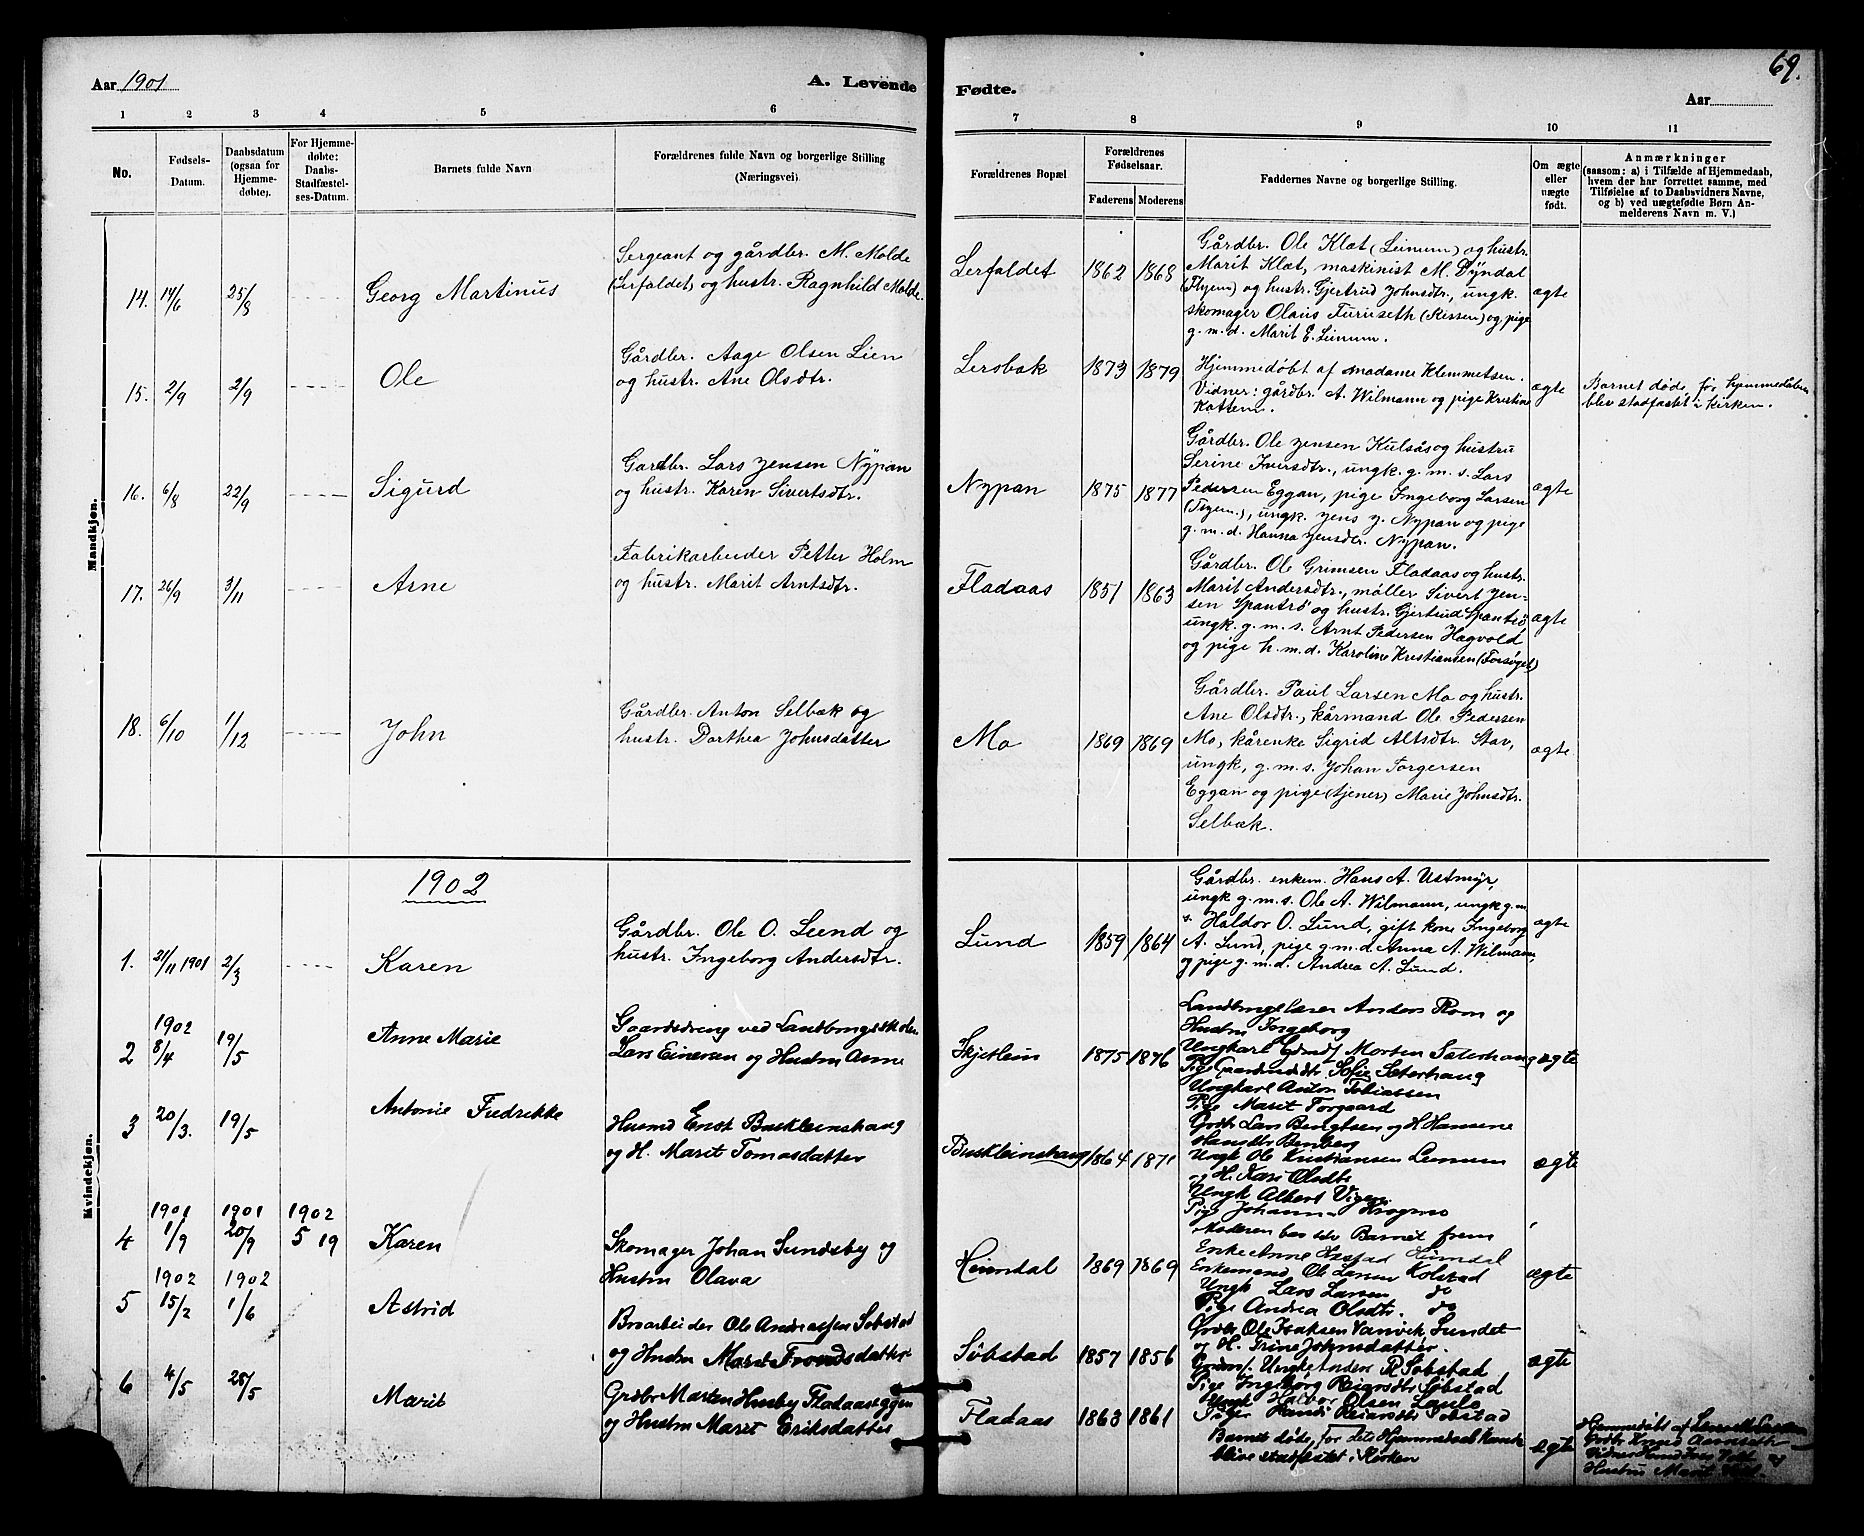 Aar 1901
A. Levende
Fødte.
69.
Aar
1 2 3 4 5 6 7 8 9 10 11
No.
Fødsels-
Datum.
Daabsdatum
(ogsaa for
Hjemme-
døbte).
For Hjemme-
døbte:
Daabs-
Stadfæstel-
ses-Datum.
Barnets fulde Navn
Forældrenes fulde Navn og borgerlige Stilling
(Næringsvei).
Forældrenes Bopæl
Forældrenes
Fødselsaar.
Faderens Moderens
Faddernes Navne og borgerlige Stilling.
Om ægte
eller
uægte
født.
Anmærkninger
(saasom: a) i Tilfælde af Hjemmedaab,
hvem der har forrettet samme, med
Tilføielse af to Daabsvidners Navne,
og b) ved uægtefødte Børn An-
melderens Navn m. V.)
Mandkjøn.
14. 14/6 25/8
Georg Martinus
Sergeant og gårdbr. M. Molde
(Lerfaldet) og hustr. Ragnhild Molde.
Lerfaldet 1862 1868
Gårdbr. Ole Klæt (Leinum) og hustr.
Marit Klæt, maskinist M. Dyndal
(Flyem) og hustr. Gjertrud Johnsdtr., ungk.
skomager Olaus Furuseth (Rissen) og pige
g. m. d. Marit E. Leinum.
ægte
15. 2/9 2/9
Ole
Gårdbr. Aage Olsen Lien
og hustr. Ane Olsdtr.
Lersbak 1873 1879
Hjemmedøbt af madame Klemmetsen.
Vidner: gårdbr. A. Wilmann og pige Kristine
Kattem.
ægte
Barnet døde før hjemmedåben
blev stadfæstet i kirken.
16. 6/8 22/9
Sigurd
Gardbr. Lars Jensen Nypan
og hustr. Karen Sivertsdtr.
Nypan 1875 1877
Gårdbr. Ole Jensen Kulsås og hustru
Serine Iversdtr., ungk. g. m. s. Lars
Pedersen Eggan, pige Ingeborg Larsen
ungk. Jens J. Nypan og pige
g. m. d. Hanna Jensdtr. Nypan.
ægte
17. 26/9 3/11
Arne
Fabrikarbeider Petter Holm
og hustr. Marit Arntsdtr.
Fladaas 1851 1863
Gårdbr. Ole Grimsen Fladaas og hustr.
Marit Andersdtr., møller Sivert Jen-
sen Spantrö og hustr. Gjertrud Spantrö,
ungk. g. m. s. Arnt Pedersen Hagvold
og pige h. m. d. Karoline Kristiansen (Forsøget)
ægte
18. 6/10 1/12
John
Gårdbr. Anton Selbæk og
hustr. Dorthea Johnsdatter
Mo 1869 1869
Gårdbr. Paul Larsen Mo og hustr.
Ane Olsdtr., kårmand Ole Pedersen
Mo, kårenke Sigrid Altsdtr. Stav,
ungk. g. m. s. Johan Torgersen
Eggan og pige (tjener) Marie Johnsdtr.
Selbæk.
ægte
1902
Kvindekjøn.
1. 21/11 1901 2/3
Karen
Gårdbr. Ole O. Lund og
hustr. Ingeborg Andersdtr.
Lund 1859 1864
Gårdbr. enkem. Hans A. Ustmyr,
ungk g. m. s. Ole A. Wilmann, ungk g. m.
s. Haldor O. Lund, gift kone Ingeborg
A. Lund, pige g. m. d. Anna A. Wilmann,
og pige g. m. d. Andrea A. Lund.
ægte
2 1902 8/4 19/5
Anne Marie
Gaardsdreng ved Landbrugsskolen
Lars Einersen og Hustru Anne
Skjetlein 1875 1876
Landbrugslærer Anders Rom og
Hustru Ingeborg
Ungkarl Grmds Morten Sæterhaug
Pige Sofie Sæterhaug
Ungkarl Anton Tobiassen
Pige Marit Torgaard
ægte
3 20/3. 19/5
Antonie Fredrikke
Husmd Enst Buskleinshaug
og H. Marit Tomasdatter
Buskleinshaug 1864 1871
Grdbr Lars Bengtsen og H Hansene
Hansdtr Benberg
Ungk Ole Kristiansen Leinum
og H. Kari Olsdtr
Ungk Albert Vigen
Pige Johanna Krogmo
ægte
4 1901 1/9 1901 20/9 1902 5 19
Karen
Skomager Johan Sundsby og
Hustru Olava
Heimdal 1869 1869
Moderen bar selv Barnet frem
Enke Anne Hæstad Heimdal
Enkemand Ole Larsen Kolstad
Ungk Lars Larsen do
Pige Andrea Olsdtr. do
ægte
5 1902 15/2 1902 1/6
Astrid
Broarbeider Ole Andreassen Søbstad
og Hustru Marit Trondsdatter
Søbstad 1857 1856
Grdbr Ole Isaksen Vanvik Sundet
og H. Trine Johnsdatter.
Ungk Anders R Søbstad
Pige Ingeborg Reiarsdtr Søbstad
Ungk Halvor Olsen Laulo
Pige Randi Reiarsdtr Søbstad
ægte
6 4/5 25/5
Marit
Grdbr Marten Husby Fladaaseggen
og Hustru Marit Eriksdatter
Fladaas 1863 1861
Barnet døde, før dets Hjemmedaab kunde
blive stadfæstet i Kirken
ægte
Hjemmedøbt af
Hustru Marit